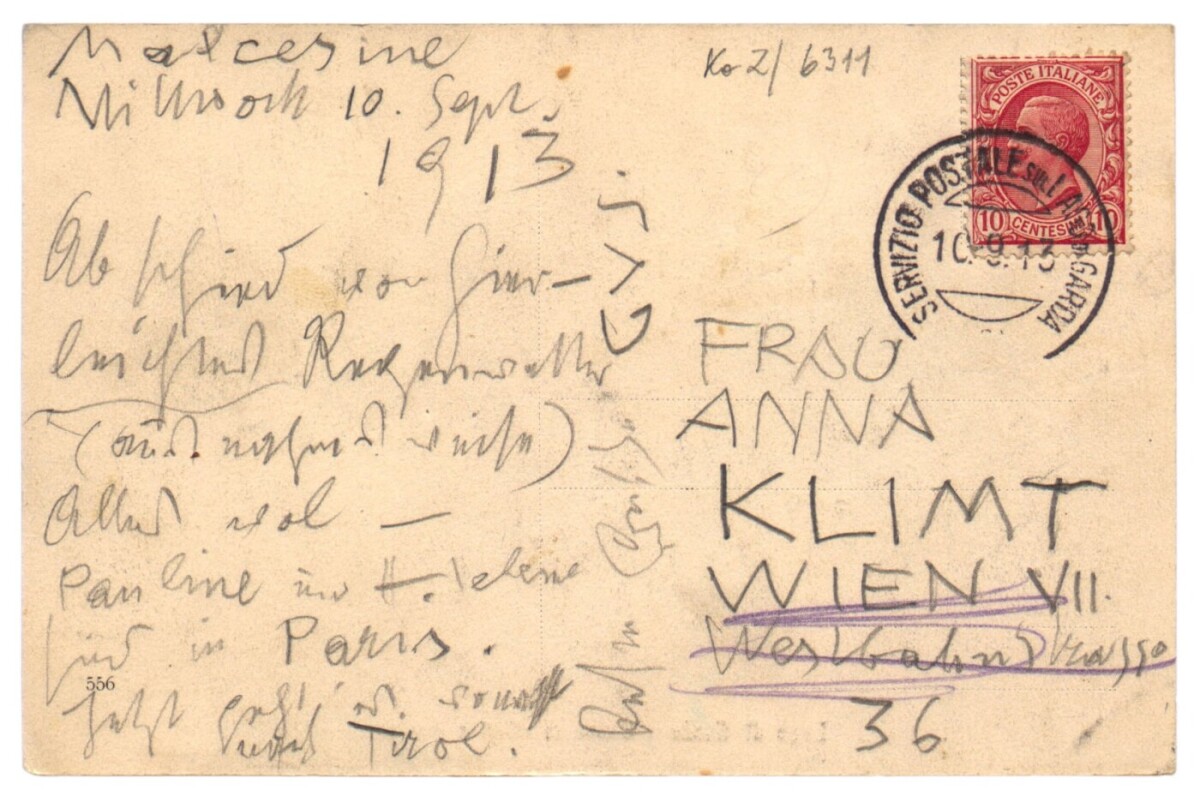 Malcesine
Mittwoch 10. Sept.
1913
Abschied von hier –
leichtes Regenwetter
(ausnahmsweise)
Alles wol –
Pauline und Helene
sind in Paris.
Jetzt geht es
nach Tirol.
Gustav
Ko Z/ 6311
POSTE ITALIANE
10 CENTESIMI 10
SERVIZIO POSTALE SUL LAGO GARDA
10.9.13
FRAU
ANNA
KLIMT
WIEN VII.
Westbahnstrasse
36
556